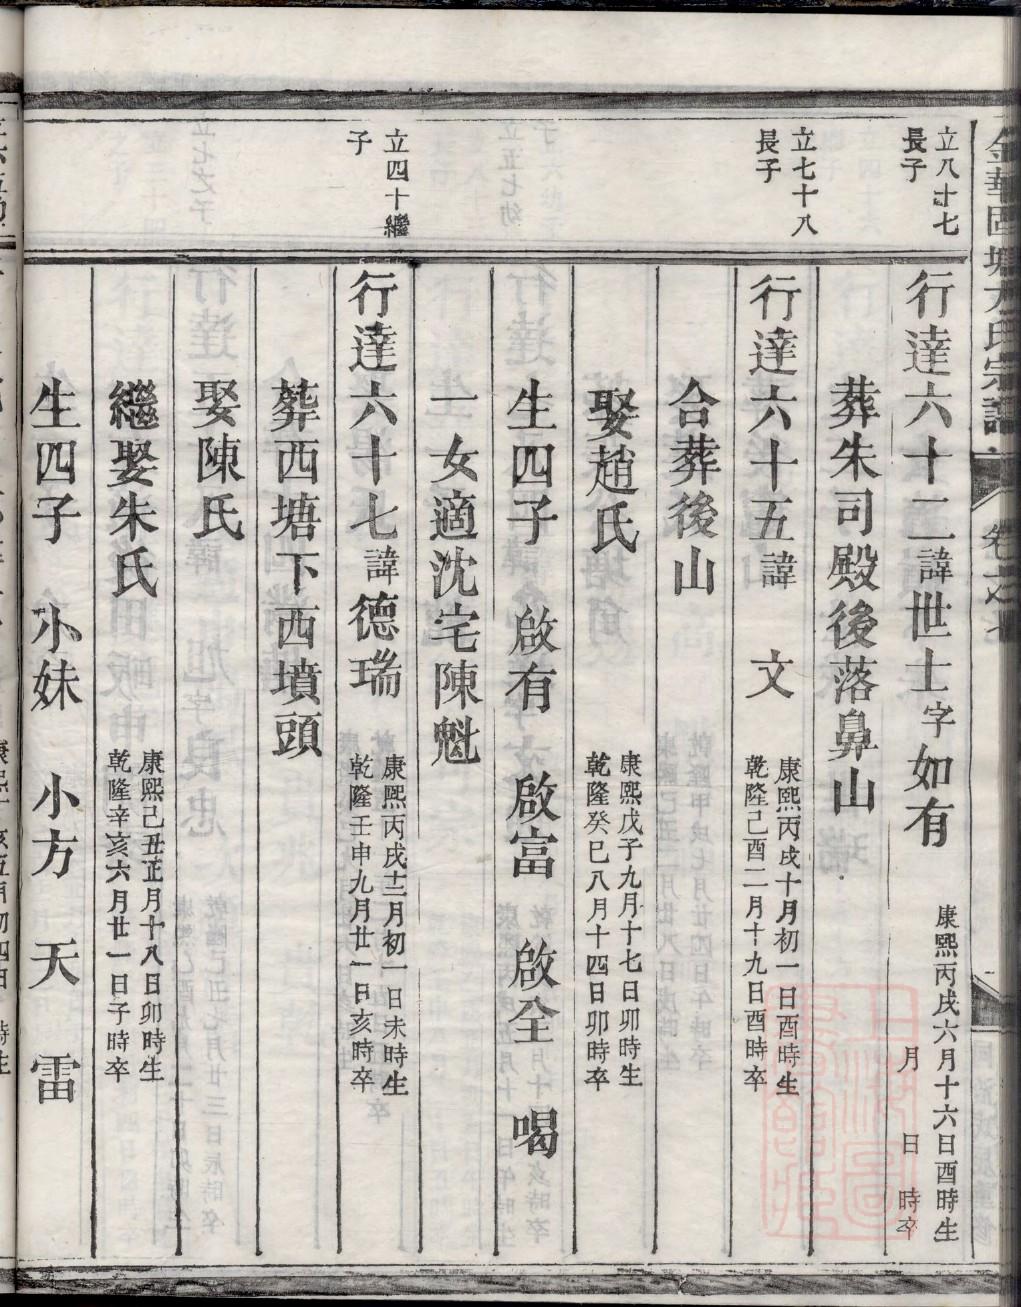 立八十七
長子
行達六十二諱世士字如有
康熙丙戌六月十六日酉時生
月 日 時卒
葬朱司殿後落鼻山
立七十八
長子
行達六十五諱 文
康熙丙戌十月初一日酉時生
乾隆己酉二月十九日酉時卒
合葬後山
娶趙氏
康熙戊子九月十七日卯時生
乾隆癸巳八月十四日卯時卒
生四子 啟有 啟富 啟全 喝
一女適沈宅陳魁
立四十繼
子
行達六十七諱德瑞
康熙丙戌十二月初一日未時生
乾隆壬申九月廿一日亥時卒
葬西塘下西墳頭
娶陳氏
繼娶朱氏
康熙己丑正月十八日卯時生
乾隆辛亥六月廿一日子時卒
生四子 小妹 小方 天 雷